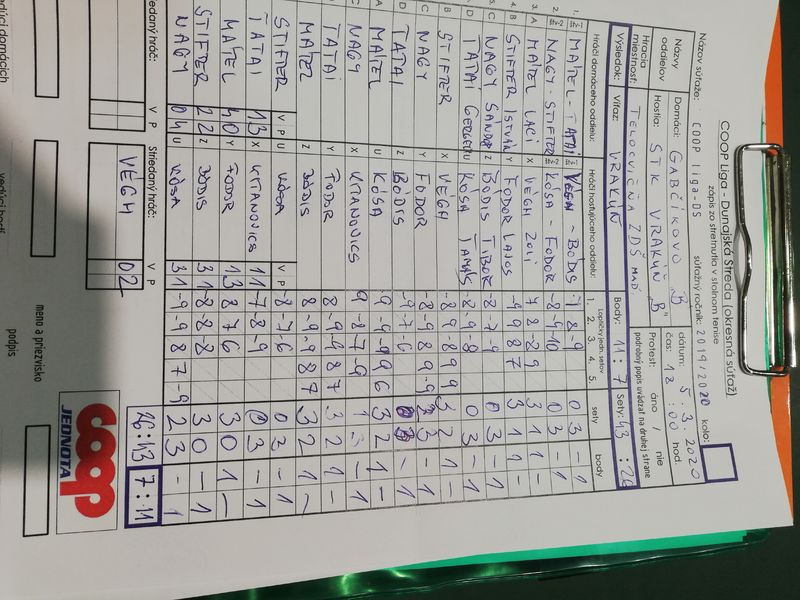 COOP Liga - Dunajská Streda (okresná súťaž)
zápis zo stretnutia v stolnom tenise
Názov súťaže: COOP Liga-DS súťažný ročník: 2019/2020 kolo:
Názvy oddielov Domáci: GABČÍKOVO "B" dátum: 5.3.2020
Hostia: STK VRAKÚŇ "B" čas: 18:00 hod.
Hracia miestnosť: TELOCVIČŇA ZDŠ MAĎ. Protest: áno / nie
podrobný popis uvádzať na druhej strane
Výsledok: Víťaz: VRAKÚŇ Body: 11:7 Sety: 43:26
Hráči domáceho oddielu: Hráči hosťujúceho oddielu: Lopičky jedn. setov sety body
1. 2. 3. 4. 5.
1. MATEL - TATAI VÉGH - BÓDIS -7 8 -9 0 3 - 1
2. NAGY - STIFTER KÓSA - FODOR -8 -9 -10 0 3 - 1
3. A MATEL LACI X VÉGH ZOLI 7 8 -2 9 3 1 1 -
4. B STIFTER ISTVÁN Y FODOR LAJOS -9 9 8 7 3 1 1 -
5. C NAGY SÁNDOR Z BÓDIS TIBOR -8 -7 -9 0 3 - 1
D TATAI GERGELY U KÓSA TAMÁS -8 -9 -8 0 3 - 1
B STIFTER X VÉGH -8 9 -8 9 9 3 2 1 -
C NAGY Y FODOR 8 -9 8 -9 -9 2 3 - 1
D TATAI Z BÓDIS -9 -7 -6 0 3 - 1
A MATEL U KÓSA 9 -9 -9 9 6 3 2 1 -
C NAGY X KTANOVICS 9 -8 -7 -9 1 3 - 1
TATAI Y FODOR 8 -9 8 7 3 2 1 -
MATEL Z BÓDIS 8 -9 -9 8 7 3 2 1 -
STIFTER U KÓSA -8 -7 -6 0 3 - 1
V P V P
TATAI 13 X KTANOVICS 11 7 -8 -9 0 3 - 1
MATEL 40 Y FODOR 13 8 7 6 3 0 1 -
STIFTER 22 Z BÓDIS 31 -8 -8 -8 3 0 - 1
NAGY 04 U KÓSA 31 -9 -9 8 7 -9 2 3 - 1
Striedaný hráč: V P Striedaný hráč: V P
VÉGH 02
26:43 7:11
coop
JEDNOTA
meno a priezvisko
podpis